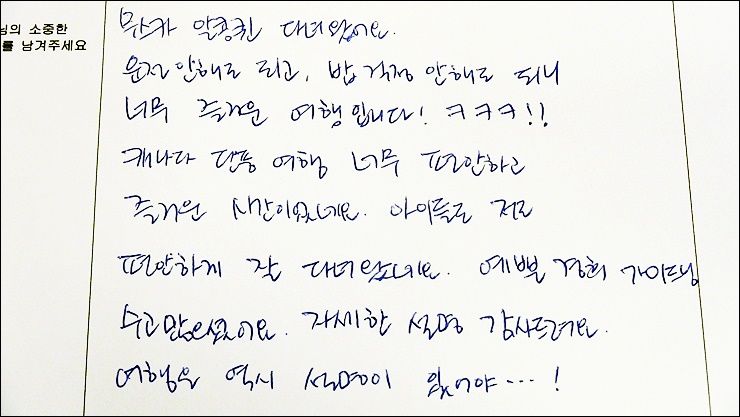 님의 소중한
를 남겨주세요
무스카 알공퀸 다녀왔어요.
운전 안해도 되고, 밥 걱정 안해도 되니
너무 즐거운 여행입니다! ㅋㅋㅋ!!
캐나다 단풍 여행 너무 편안하고
즐거운 시간이었네요. 아이들도 저도
편안하게 잘 다녀왔네요. 예쁜 경희 가이드님
수고 많으셨어요. 자세한 설명 감사드려요.
여행은 역시 설명이 있어야...!